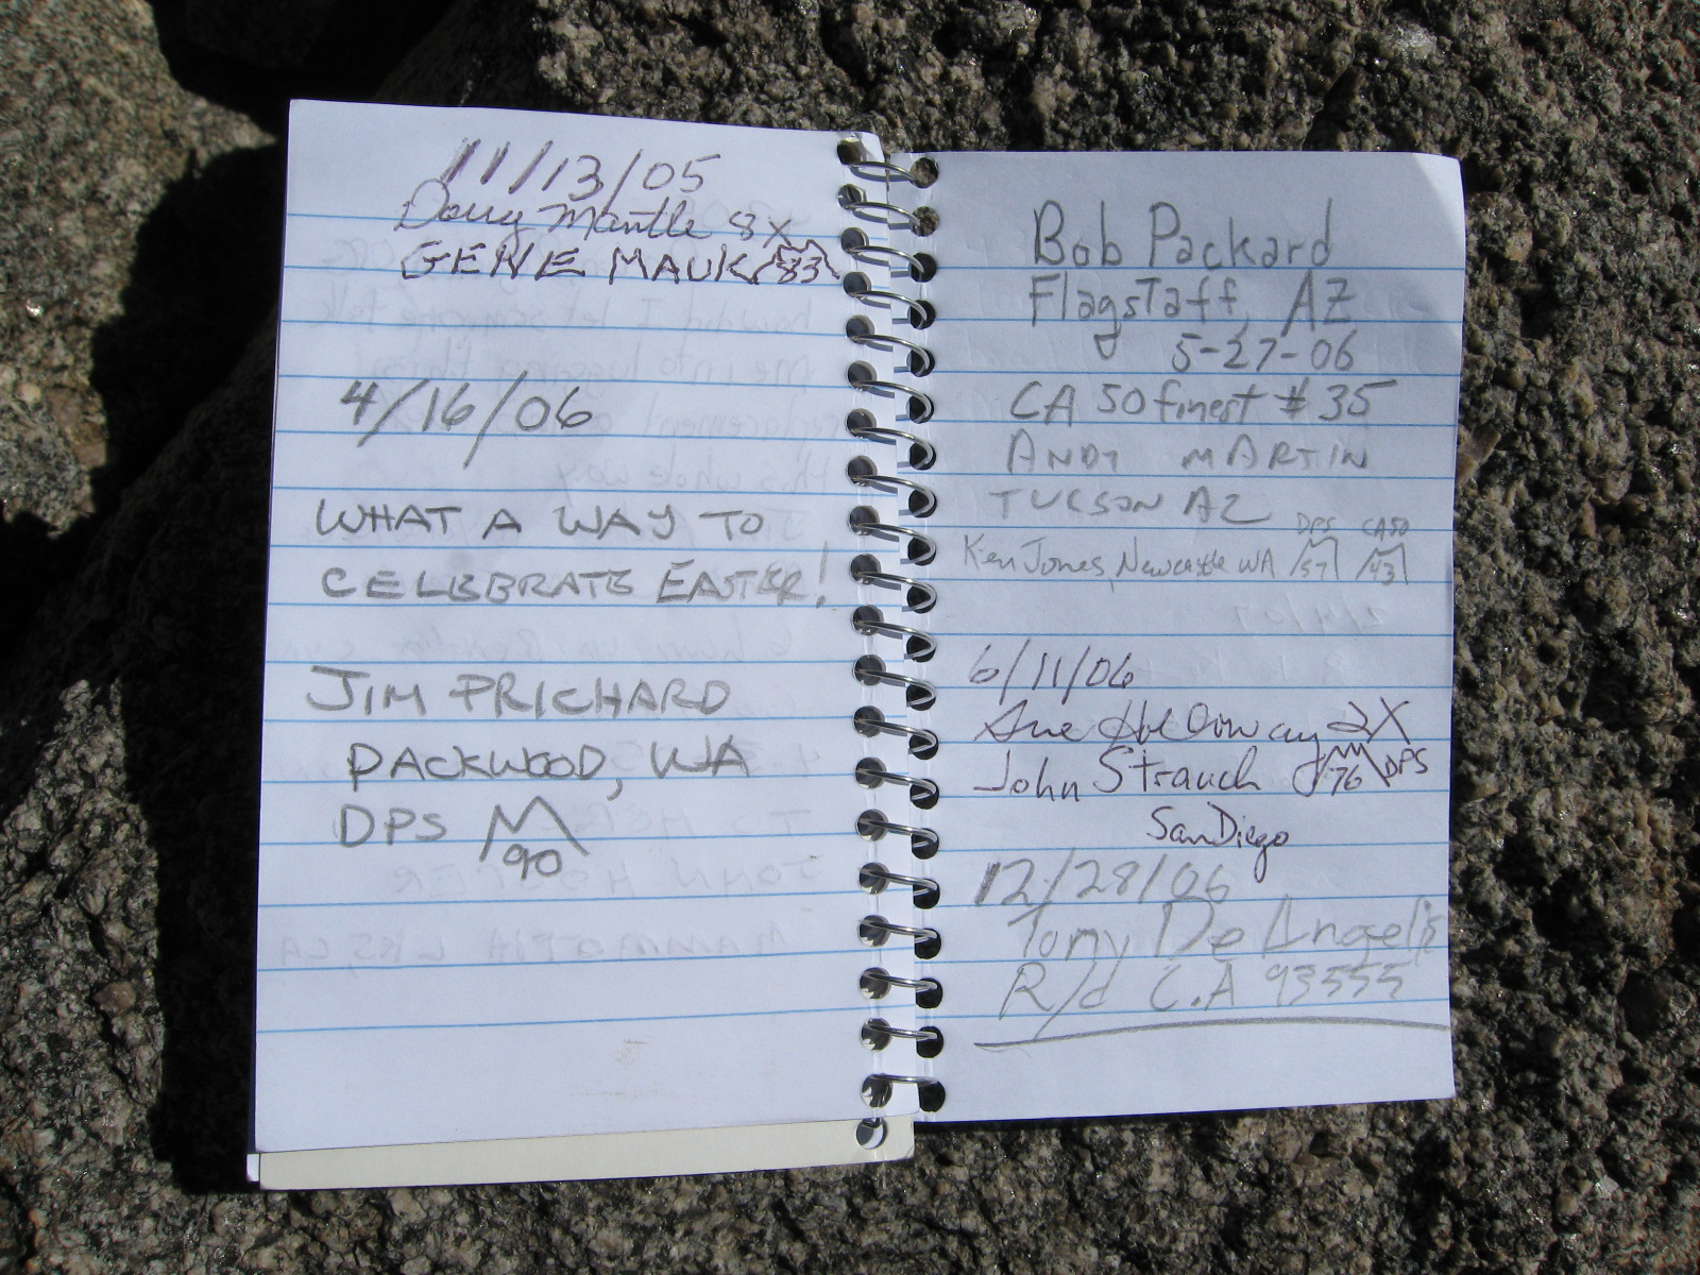 11/13/05
Doug Mantle 8x
GENE MAUK 83
4/16/06
WHAT A WAY TO
CELEBRATE EASTER!
JIM PRICHARD
PACKWOOD, WA
DPS
90
Bob Packard
Flagstaff, AZ
5-27-06
CA 50 finest #35
ANDY MARTIN
TUCSON AZ
DPS CA50
Ken Jones, Newcastle WA 57 43
6/11/06
Sue Holloway 2X
John Strauch 76 DPS
San Diego
12/28/06
Tony De Angelis
R/d C.A 93555